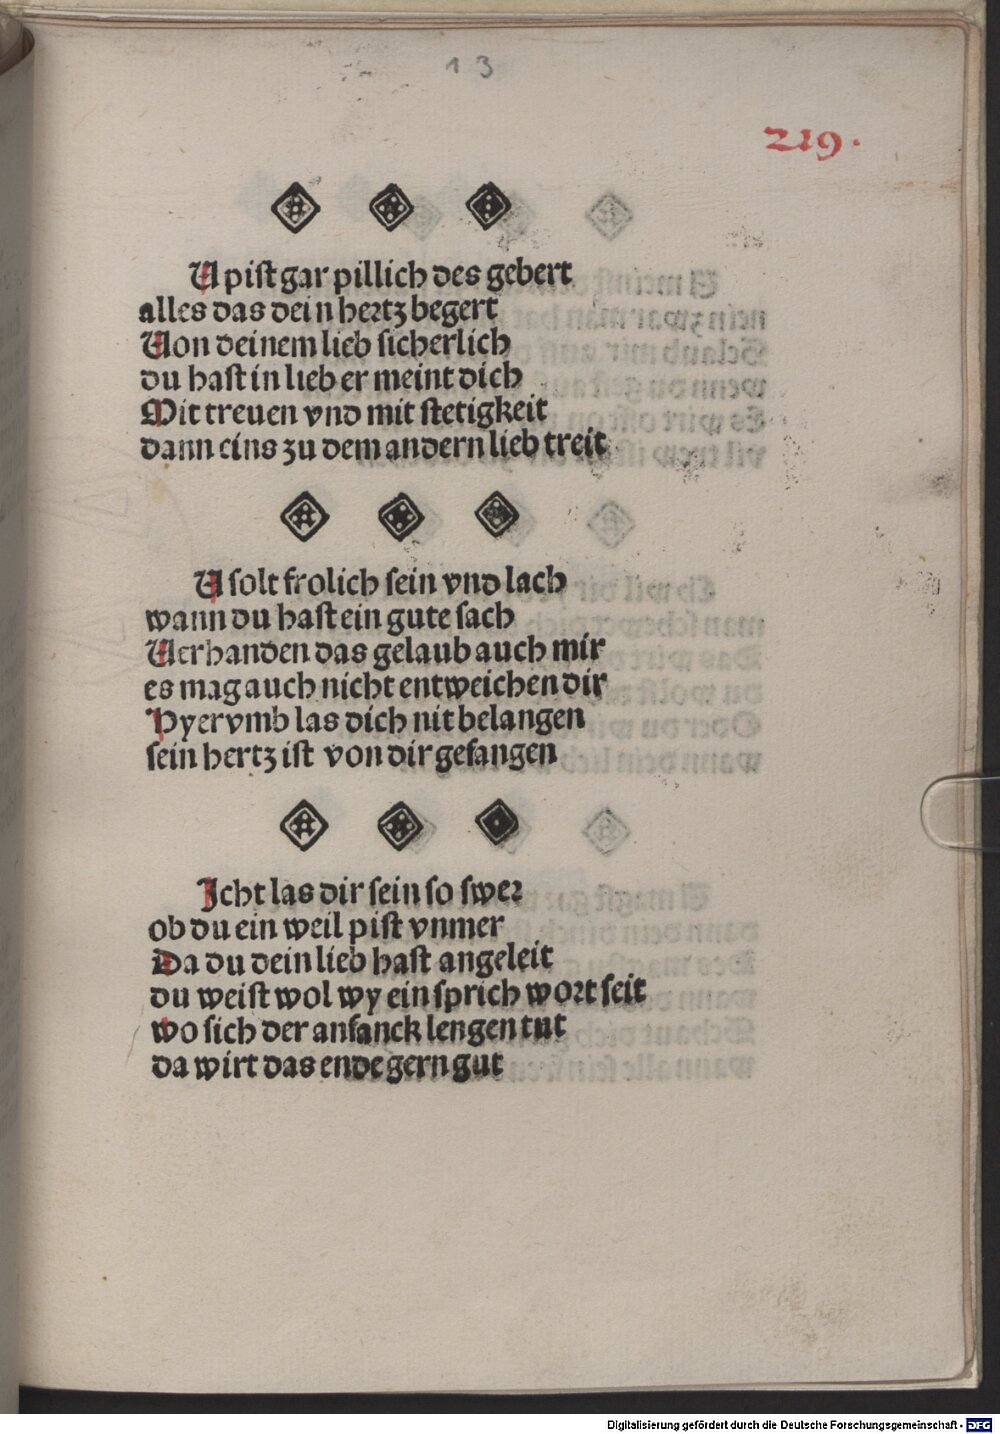 13
219.
U pist gar pillich des gebert
alles das dein hertz begert
Uon deinem lieb sicherlich
du hast in lieb er meint dich
Mit treuen vnd mit stetigkeit
dann eins zu dem andern lieb treit
U solt frolich sein vnd lach
wann du hast ein gute sach
Uerhanden das gelaub auch mir
es mag auch nicht entweichen dir
Hyervmb las dich nit belangen
sein hertz ist von dir gefangen
Icht las dir sein so swer
ob du ein weil pist vnmer
Da du dein lieb hast angeleit
du weist wol wy ein sprich wort seit
wo sich der anfanck lengen tut
da wirt das ende gern gut
Digitalisierung gefördert durch die Deutsche Forschungsgemeinschaft - DFG